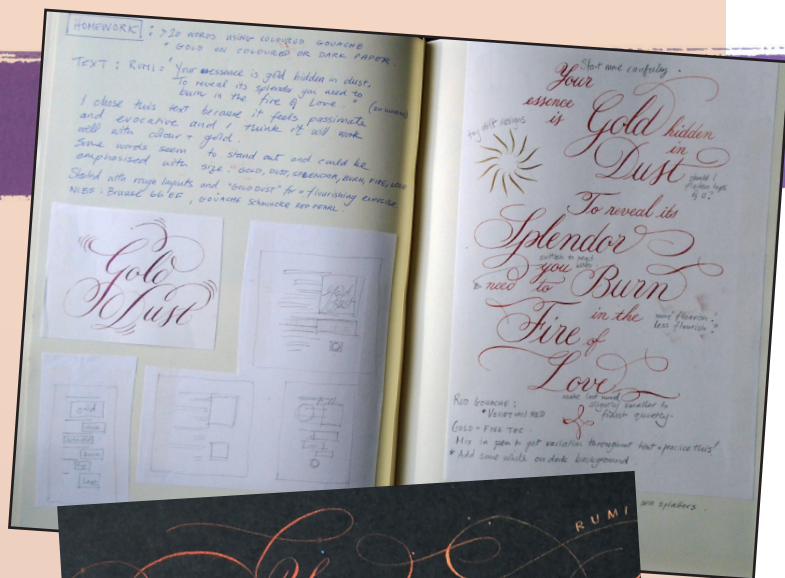 HOMEWORK : >20 WORDS USING COLOURED GOUACHE
* GOLD ON COLOURED OR DARK PAPER.
TEXT : RUMI = "Your essence is gold hidden in dust.
To reveal its splendor you need to
burn in the fire of Love."
I chose this text because it feels passionate
and evocative and I think it will work
well with colour + gold.
Some words seem to stand out and could be
emphasised with size. "GOLD, DUST, SPLENDOR, BURN, FIRE, LOVE
Started with rough layouts and "GOLD DUST" for a flourishing exercise.
NIBS : Brause 66 EF, GOUACHE SCHMINCKE RED PEARL.
Gold
Dust
gold
dust
gold
Love
Start more carefully.
Your
essence
is
Gold hidden
in
Dust
try diff designs
should I
flatten loops
of G?
To reveal its
Splendor
you
need to Burn
in the
more fleuron?
less flourish?
Fire of
Love
make last word
slightly smaller to
finish quietly.
RED GOUACHE :
* VENETIAN RED
GOLD = FINE TEC.
Mix in pen to get variation throughout text - practice this!
* Add some white on dark background.
splatters
RUMI